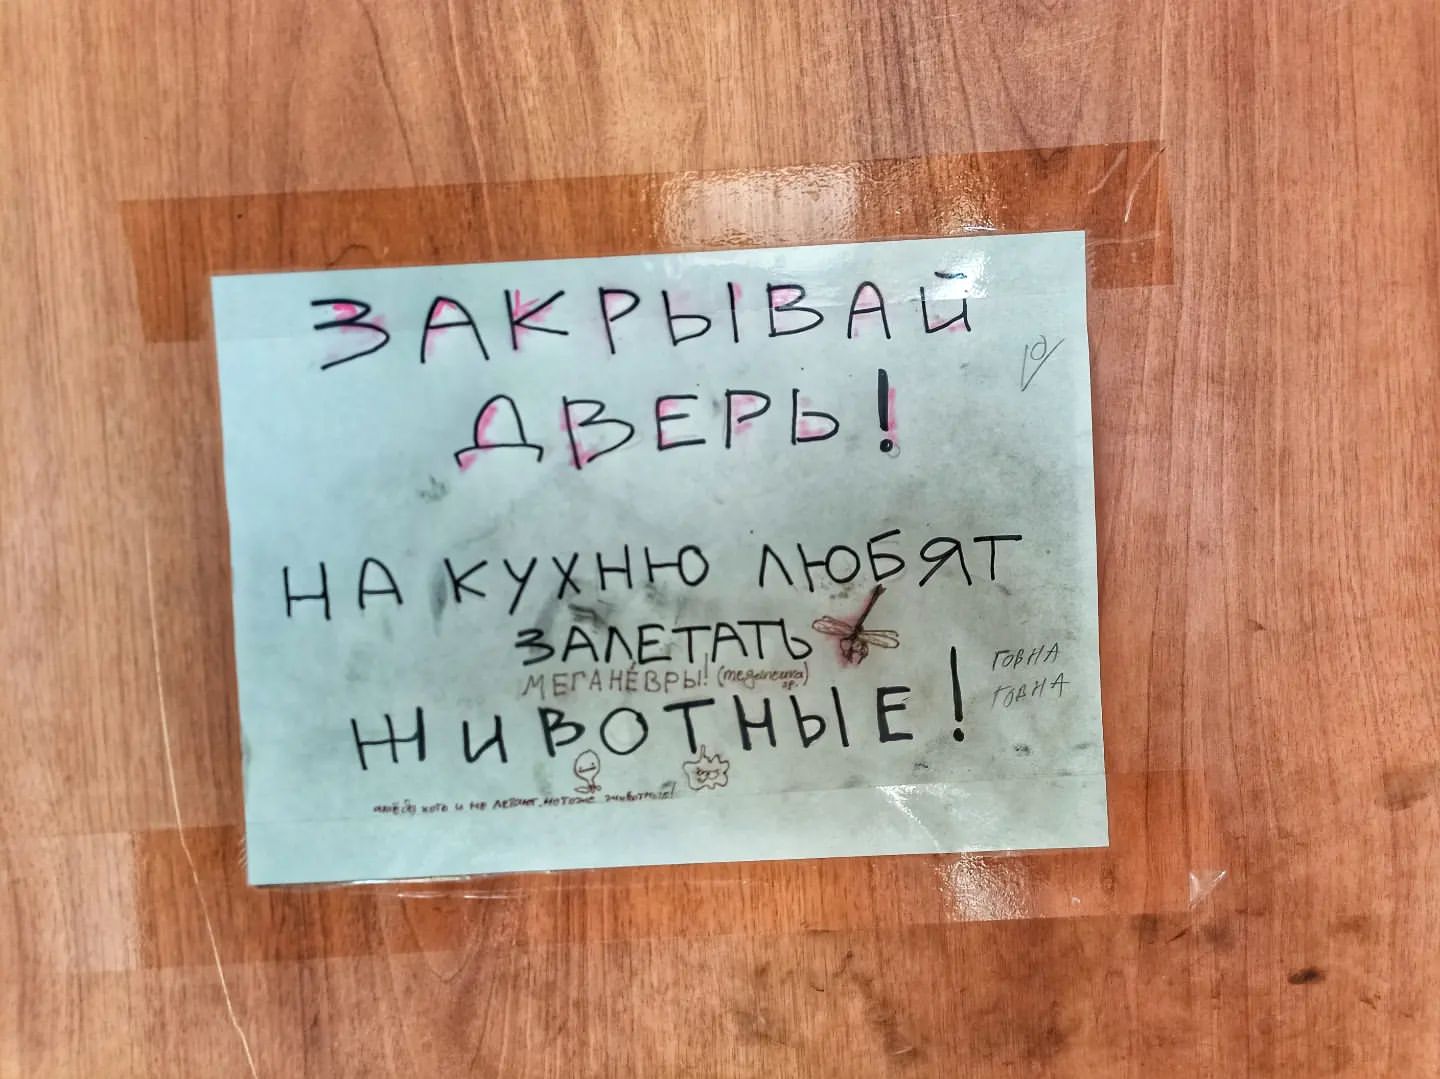 ЗАКРЫВАЙ
ДВЕРЬ!
НА КУХНЮ ЛЮБЯТ
ЗАЛЕТАТЬ
МЕГАНЁВРЫ! (meganeura sp.)
ЖИВОТНЫЕ!
ГОВНА
ГОВНА
хоть и не летают, но тоже животные!